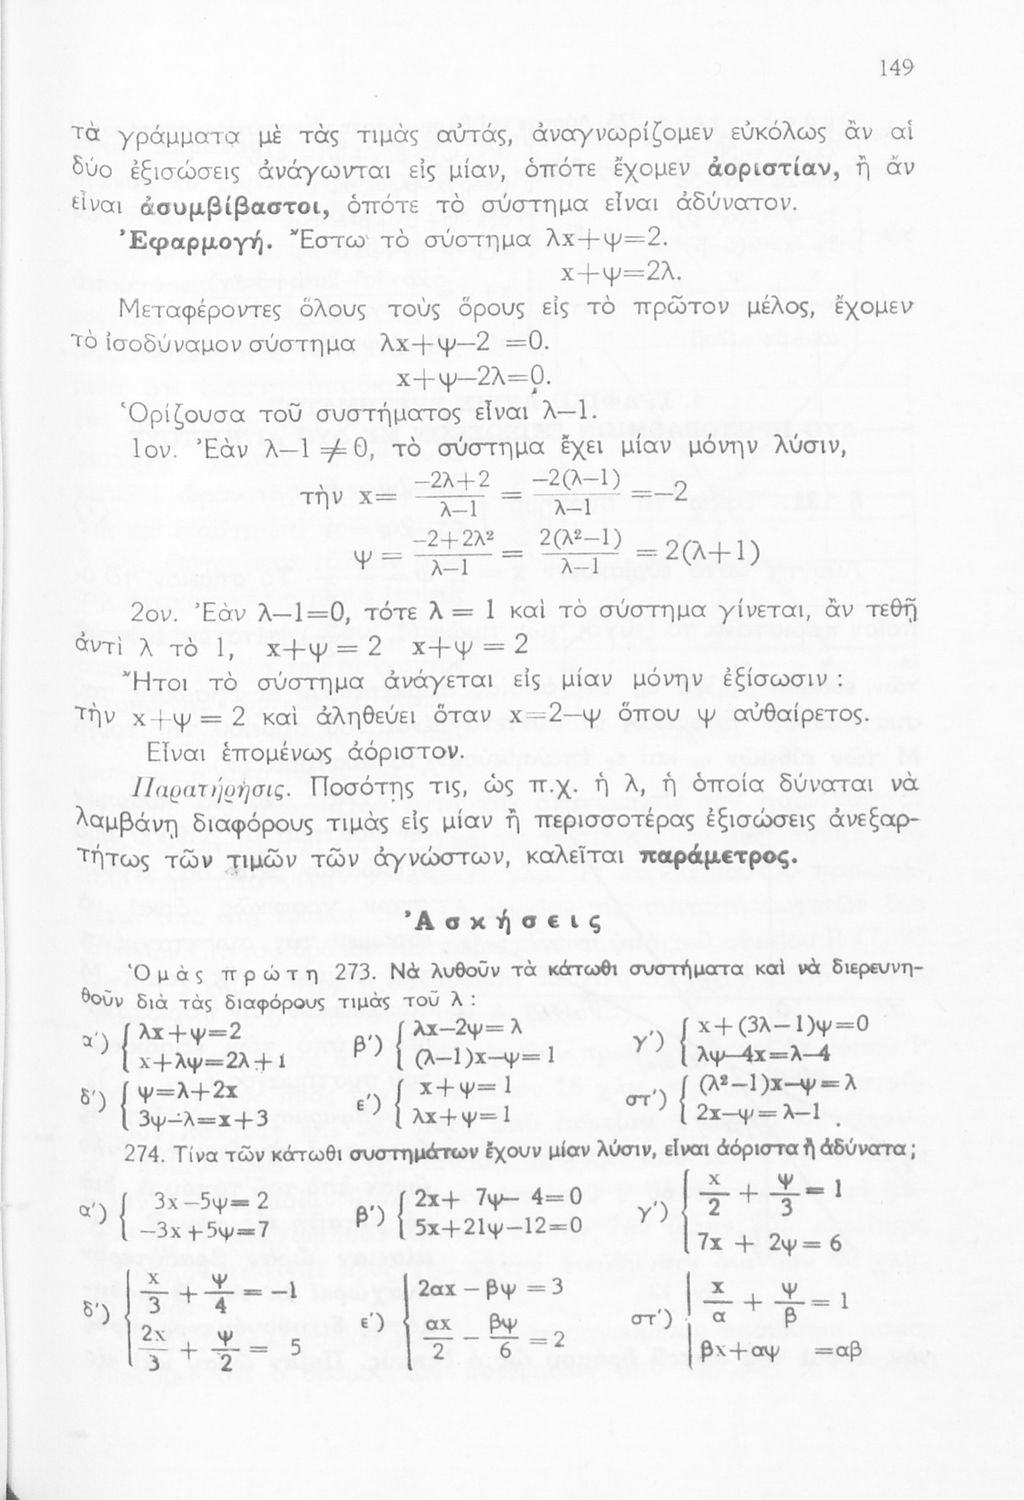 149
τὰ γράμματα μὲ τὰς τιμὰς αὐτάς, ἀναγνωρίζομεν εὐκόλως ἂν αἱ
δύο ἐξισώσεις ἀνάγωνται εἰς μίαν, ὁπότε ἔχομεν ἀοριστίαν, ἢ ἂν
εἶναι ἀσυμβίβαστοι, ὁπότε τὸ σύστημα εἶναι ἀδύνατον.
Ἐφαρμογή. Ἔστω τὸ σύστημα λx+ψ=2.
x+ψ=2λ.
Μεταφέροντες ὅλους τοὺς ὅρους εἰς τὸ πρῶτον μέλος, ἔχομεν
τὸ ἰσοδύναμον σύστημα λx+ψ—2 =0.
x+ψ—2λ=0.
Ὁρίζουσα τοῦ συστήματος εἶναι λ—1.
1ον. Ἐὰν λ—1 ≠ 0, τὸ σύστημα ἔχει μίαν μόνην λύσιν,
τὴν x= (—2λ+2)/(λ—1) = (—2(λ—1))/(λ—1) =—2
ψ = (—2+2λ²)/(λ—1) = (2(λ²—1))/(λ—1) = 2(λ+1)
2ον. Ἐὰν λ—1=0, τότε λ = 1 καὶ τὸ σύστημα γίνεται, ἂν τεθῇ
ἀντὶ λ τὸ 1, x+ψ = 2 x+ψ = 2
Ἤτοι τὸ σύστημα ἀνάγεται εἰς μίαν μόνην ἐξίσωσιν :
τὴν x+ψ = 2 καὶ ἀληθεύει ὅταν x=2—ψ ὅπου ψ αὐθαίρετος.
Εἶναι ἑπομένως ἀόριστον.
Παρατήρησις. Ποσότης τις, ὡς π.χ. ἡ λ, ἡ ὁποία δύναται νὰ
λαμβάνῃ διαφόρους τιμὰς εἰς μίαν ἢ περισσοτέρας ἐξισώσεις ἀνεξαρ-
τήτως τῶν τιμῶν τῶν ἀγνώστων, καλεῖται παράμετρος.
Ἀσκήσεις
Ὁμὰς πρώτη 273. Νὰ λυθοῦν τὰ κάτωθι συστήματα καὶ νὰ διερευνη-
θοῦν διὰ τὰς διαφόρους τιμὰς τοῦ λ :
α') { λx+ψ=2 β') { λx—2ψ= λ γ') { x+(3λ—1)ψ=0
x+λψ=2λ+1 (λ—1)x—ψ= 1 λψ—4x=λ—4
δ') { ψ=λ+2x ε') { x+ψ= 1 στ') { (λ²—1)x—ψ= λ
3ψ—λ=x+3 λx+ψ= 1 2x—ψ= λ—1
274. Τίνα τῶν κάτωθι συστημάτων ἔχουν μίαν λύσιν, εἶναι ἀόριστα ἢ ἀδύνατα ;
α') { 3x—5ψ= 2 β') { 2x+ 7ψ— 4=0 γ') { x/2 + ψ/3 = 1
—3x+5ψ=7 5x+21ψ—12=0 7x + 2ψ= 6
δ') { x/3 + ψ/4 = —1 ε') { 2αx — βψ = 3 στ') { x/α + ψ/β = 1
2x/3 + ψ/2 = 5 αx/2 — βψ/6 = 2 βx+αψ =αβ